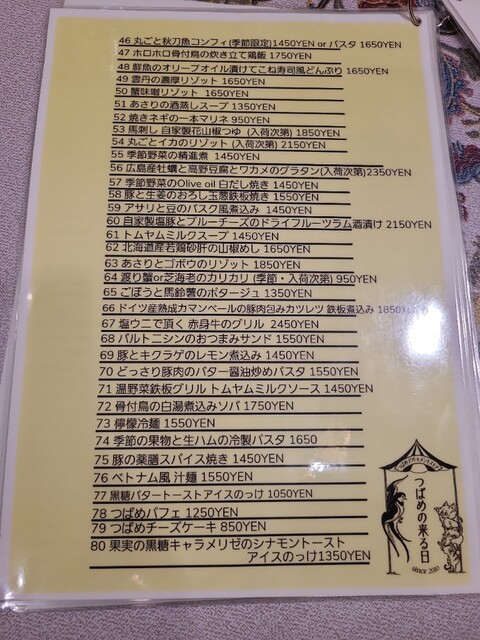 46 丸ごと秋刀魚コンフィ(季節限定)1450YEN or パスタ 1650YEN
47 ホロホロ骨付鳥の炊き立て鶏飯 1750YEN
48 鮮魚のオリーブオイル漬けてこね寿司風どんぶり 1650YEN
49 雲丹の濃厚リゾット 1650YEN
50 蟹味噌リゾット 1650YEN
51 あさりの酒蒸しスープ 1350YEN
52 焼きネギの一本マリネ 950YEN
53 馬刺し 自家製花山椒つゆ (入荷次第) 1850YEN
54 丸ごとイカのリゾット (入荷次第) 2150YEN
55 季節野菜の精進煮 1450YEN
56 広島産牡蠣と高野豆腐とワカメのグラタン(入荷次第)2350YEN
57 季節野菜のOlive oil 白だし焼き 1450YEN
58 豚と生姜のおろし玉葱鉄板焼き 1550YEN
59 アサリと豆のバスク風煮込み 1450YEN
60 自家製塩豚とブルーチーズのドライフルーツラム酒漬け 2150YEN
61 トムヤムミルクスープ 1450YEN
62 北海道産若鶏砂肝の山椒めし 1650YEN
63 あさりとゴボウのリゾット 1850YEN
64 渡り蟹or芝海老のカリカリ (季節・入荷次第) 950YEN
65 ごぼうと馬鈴薯のポタージュ 1350YEN
66 ドイツ産熟成カマンベールの豚肉包みカツレツ 鉄板煮込み 1850YEN
67 塩ウニで頂く 赤身牛のグリル 2450YEN
68 バルトニシンのおつまみサンド 1550YEN
69 豚とキクラゲのレモン煮込み 1450YEN
70 どっさり豚肉のバター醤油炒めパスタ 1550YEN
71 温野菜鉄板グリル トムヤムミルクソース 1450YEN
72 骨付鳥の白湯煮込みソバ 1750YEN
73 檸檬冷麺 1550YEN
74 季節の果物と生ハムの冷製パスタ 1650
75 豚の薬膳スパイス焼き 1450YEN
76 ベトナム風 汁麺 1550YEN
77 黒糖バタートーストアイスのっけ 1050YEN
78 つばめパフェ 1250YEN
79 つばめチーズケーキ 850YEN
80 果実の黒糖キャラメリゼのシナモントースト
アイスのっけ1350YEN
つばめの来る日